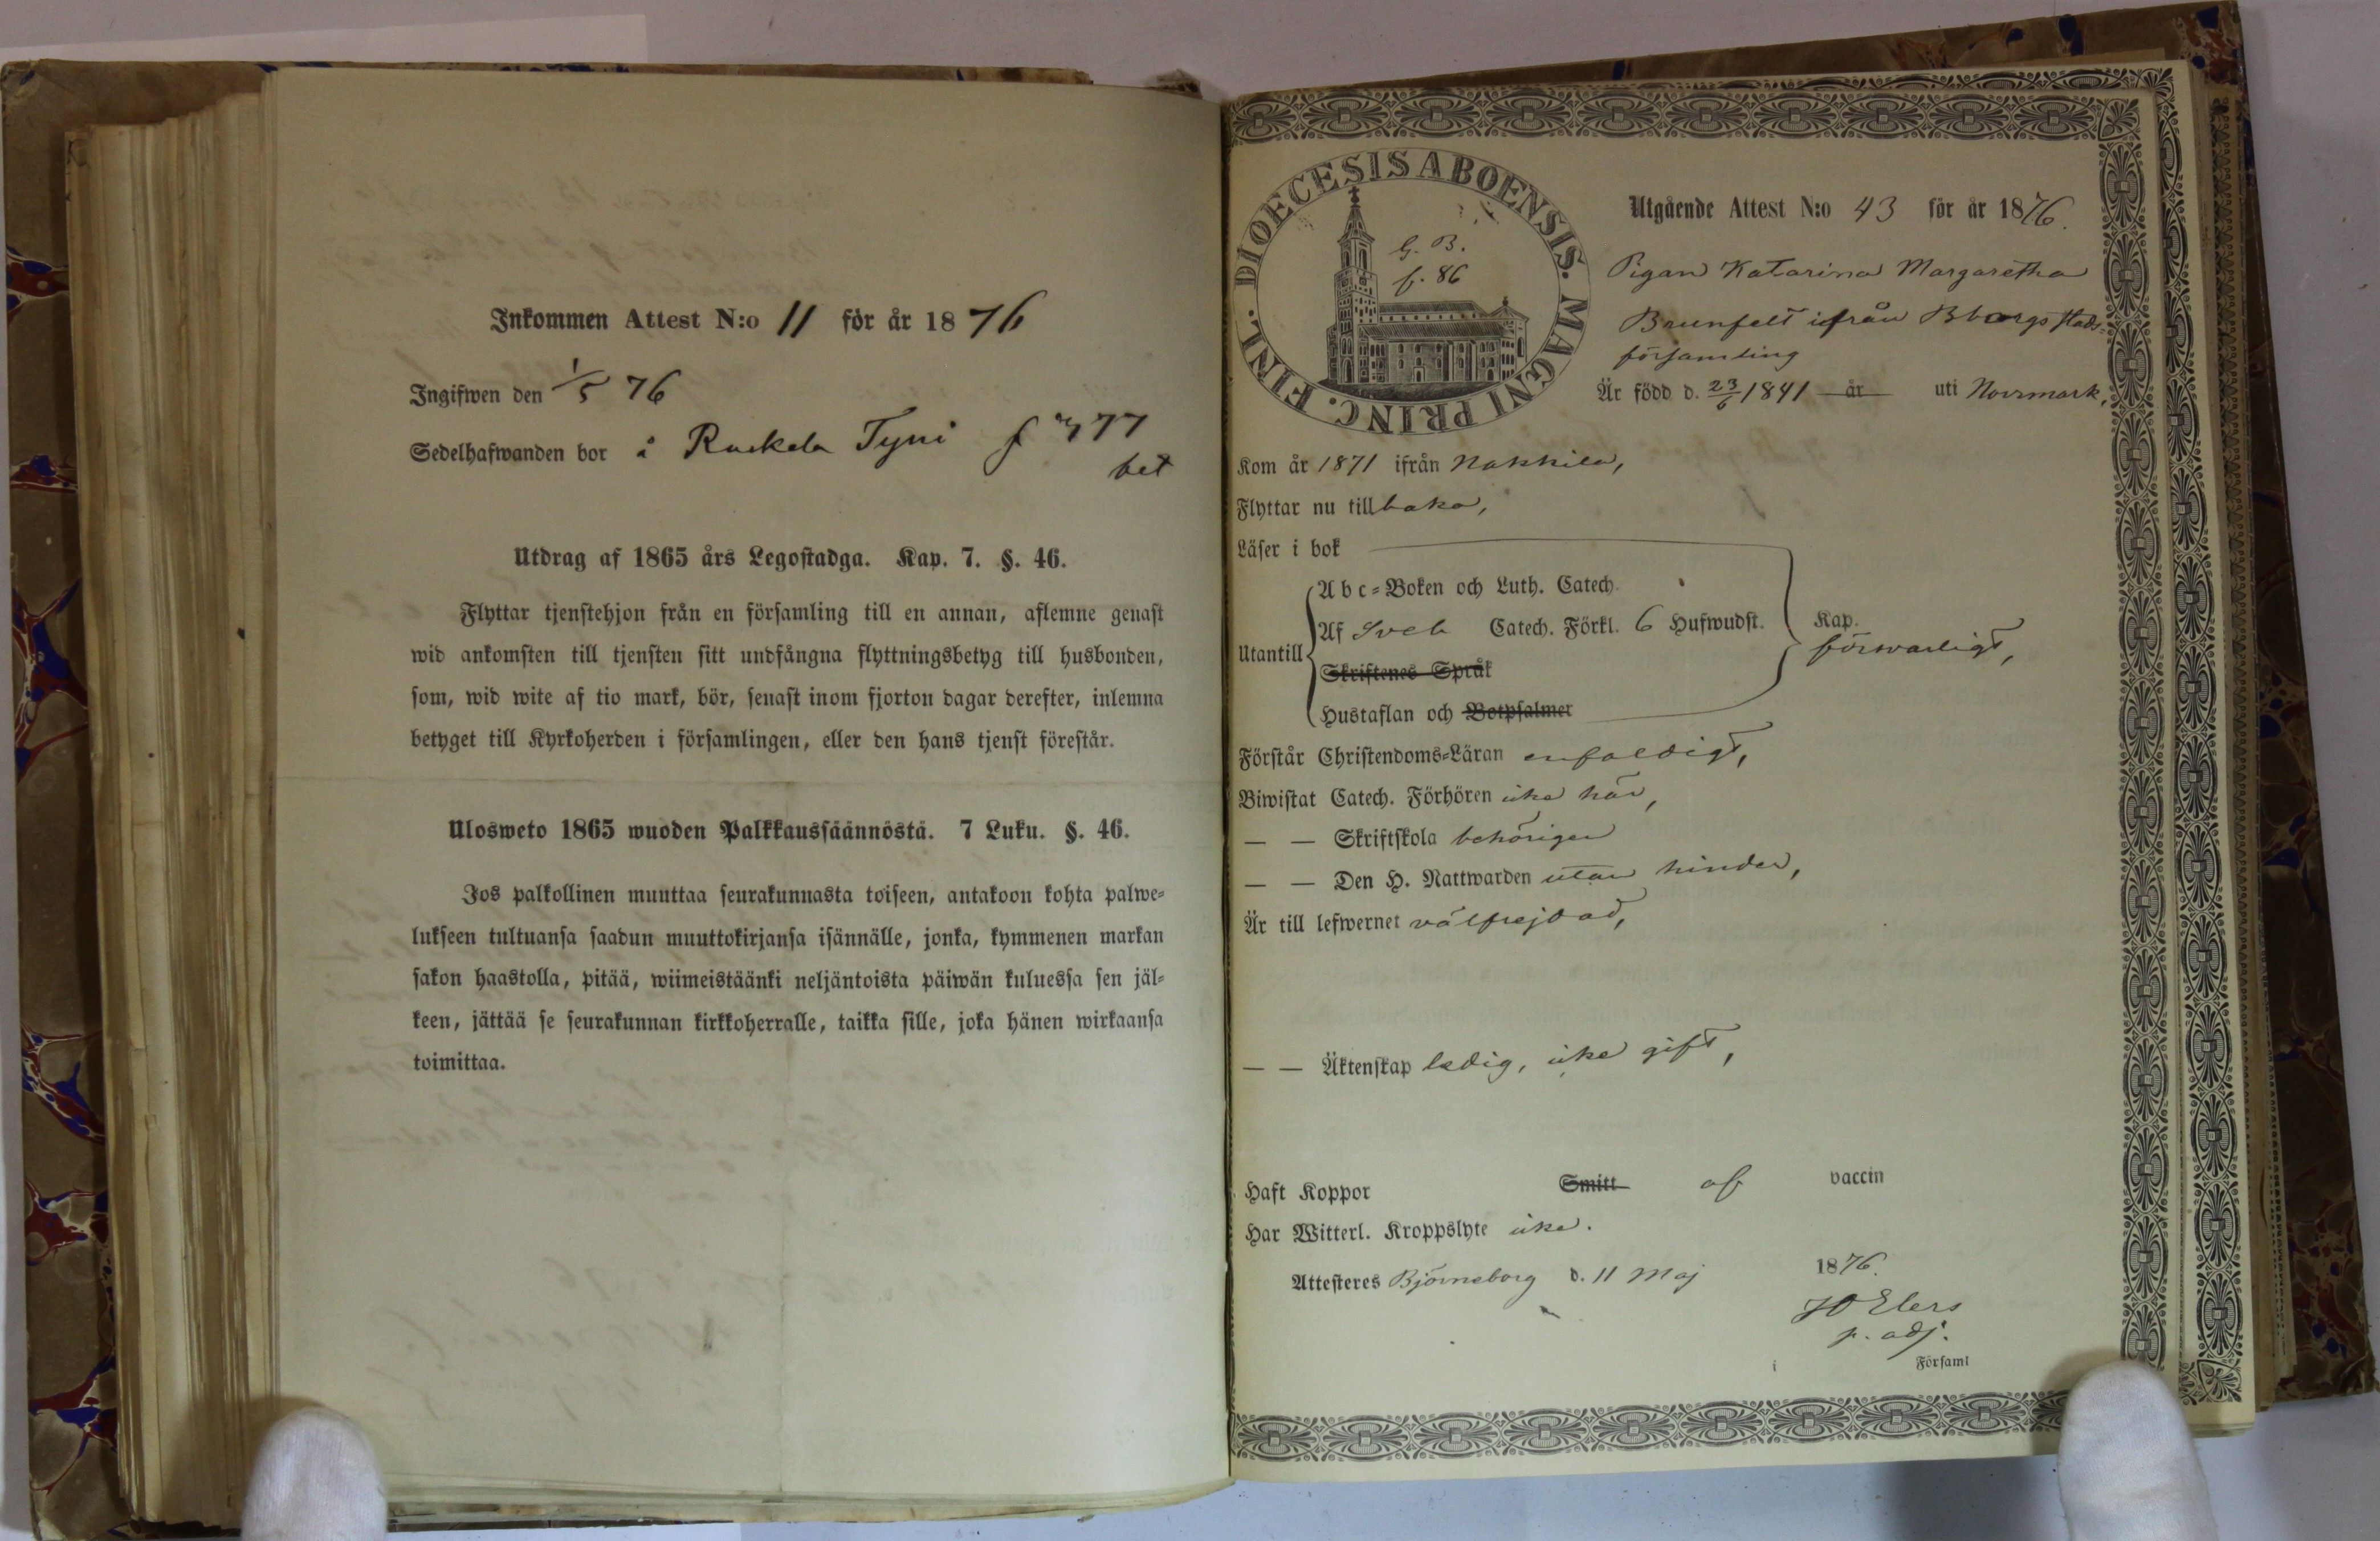 Inkommen Attest N:o 11 för år 1876
Ingifwen den 1/5 76
Sedelhafwanden bor i Ruskela Tyni f 377
bet
Utdrag af 1865 års Legostadga. Kap. 7. §. 46.
Flyttar tjenstehjon från en församling till en annan, aflemne genast
wid ankomsten till tjensten sitt undfångna flyttningsbetyg till husbonden,
som, wid wite af tio mark, bör, senast inom fjorton dagar derefter, inlemna
betyget till Kyrkoherden i församlingen, eller den hans tjenst förestår.
Ulosweto 1865 wuoden Palkkaussäännöstä. 7 Luku. §. 46.
Jos palkollinen muuttaa seurakunnasta toiseen, antakoon kohta palwe=
lukseen tultuansa saadun muuttokirjansa isännälle, jonka, kymmenen markan
sakon haastolla, pitää, wiimeistäänki neljäntoista päiwän kuluessa sen jäl=
keen, jättää se seurakunnan kirkkoherralle, taikka sille, joka hänen wirkaansa
toimittaa.
DIOECESIS ABOENSIS. MAGNI PRINC. FINL.
G. B.
f. 86
Utgående Attest N:o 43 för år 1876.
Pigan Katarina Margaretha
Brunfelt ifrån Bborgs stads=
församling
Är född d. 23/6 1841 år uti Norrmark,
Kom år 1871 ifrån Nakkila,
Flyttar nu tillbaka,
Läser i bok
Abc=Boken och Luth. Catech.
Utantill Af Sveb Catech. Förkl. 6 Hufwudst. Kap.
försvarligt,
Skriftenes Språk
Hustaflan och Botpsalmer
Förstår Christendoms=Läran enfaldigt,
Biwistat Catech. Förhören icke här,
— — Skriftskola behörigen
— — Den H. Nattwarden utan hinder,
Är till lefwernet välfrejdad,
— — Äktenskap ledig, icke gift,
Haft Koppor Smitt af vaccin
Har Witterl. Kroppslyte icke.
Attesteres Björneborg d. 11 Maj 1876.
JO Elers
p. adj.
i Församl